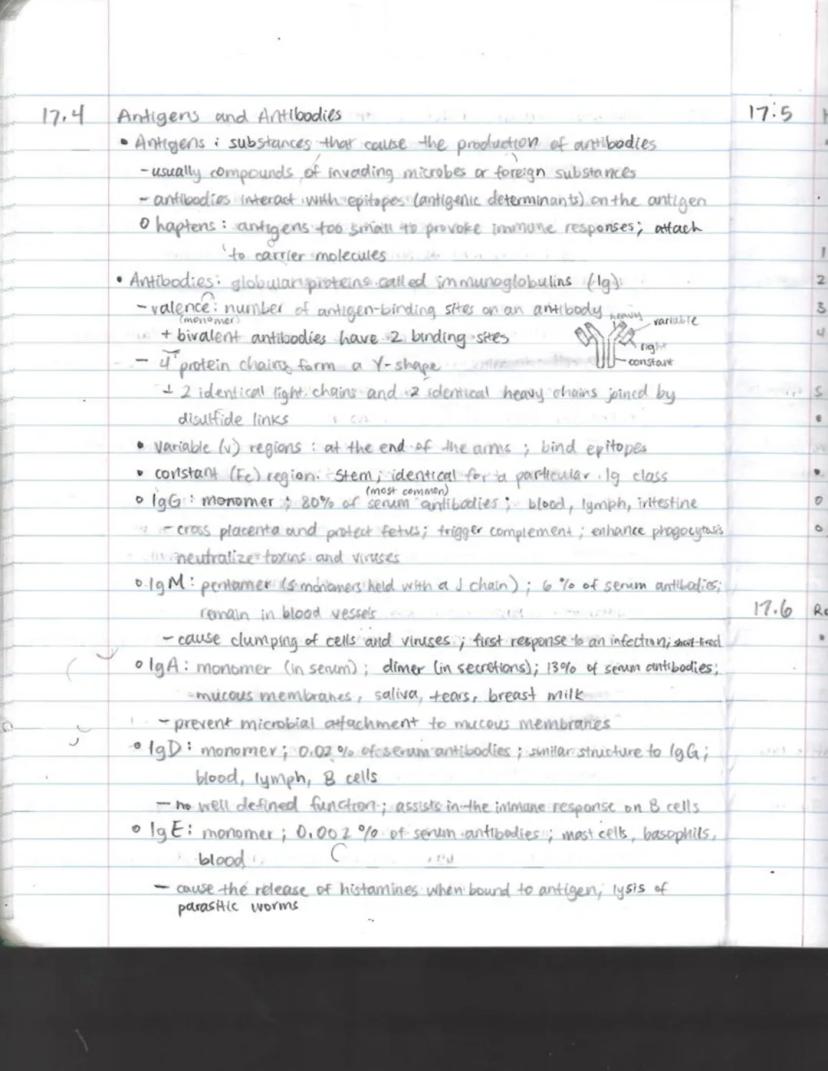 17.4 Antigens and Antibodies
• Antigens : substances that cause the production of antibodies
- usually compounds of invading microbes or foreign substances
- antibodies interact with epitopes (antigenic determinants) on the antigen
o haptens : antigens too small to provoke immune responses; attach
to carrier molecules
• Antibodies: globular proteins called immunoglobulins (Ig)
- valence: number of antigen-binding sites on an antibody
(monomer)
+ bivalent antibodies have 2 binding sites
heavy
variable
light
constant
- 4 protein chains form a Y-shape
+ 2 identical light chains and 2 identical heavy chains joined by
disulfide links
• variable (v) regions : at the end of the arms ; bind epitopes
• constant (Fc) region: stem; identical for a particular Ig class
(most common)
o IgG : monomer ; 80% of serum antibodies ; blood, lymph, intestine
- cross placenta and protect fetus; trigger complement ; enhance phagocytosis
neutralize toxins and viruses
o IgM : pentamer (5 monomers held with a J chain) ; 6 % of serum antibodies;
remain in blood vessels
- cause clumping of cells and viruses ; first response to an infection; short-lived
o IgA: monomer (in serum) ; dimer (in secretions); 13% of serum antibodies;
mucous membranes, saliva, tears, breast milk
- prevent microbial attachment to mucous membranes
o IgD: monomer ; 0.02 % of serum antibodies ; similar structure to IgG ;
blood, lymph, B cells
- no well defined function ; assists in the immune response on B cells
o IgE: monomer ; 0.002 % of serum antibodies ; mast cells, basophils,
blood
- cause the release of histamines when bound to antigen, lysis of
parasitic worms
17.5
1
2
3
4
5
17.6 Re